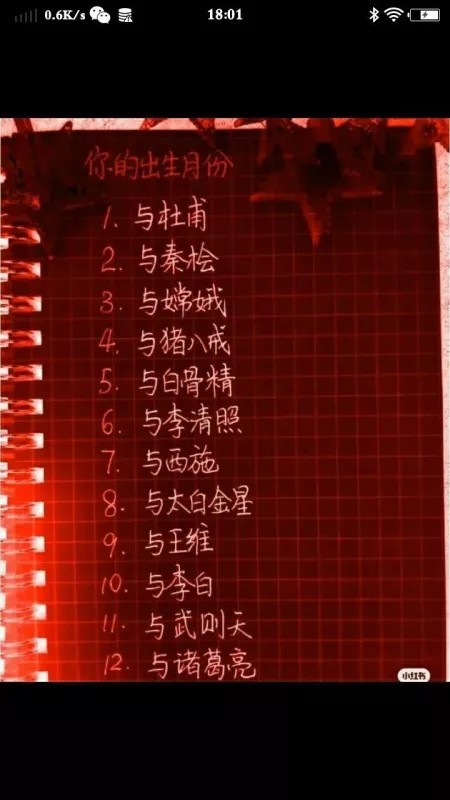 0.6K/s
18:01
你的出生月份
1. 与杜甫
2. 与秦桧
3. 与嫦娥
4. 与猪八戒
5. 与白骨精
6. 与李清照
7. 与西施
8. 与太白金星
9. 与王维
10. 与李白
11. 与武则天
12. 与诸葛亮
小红书